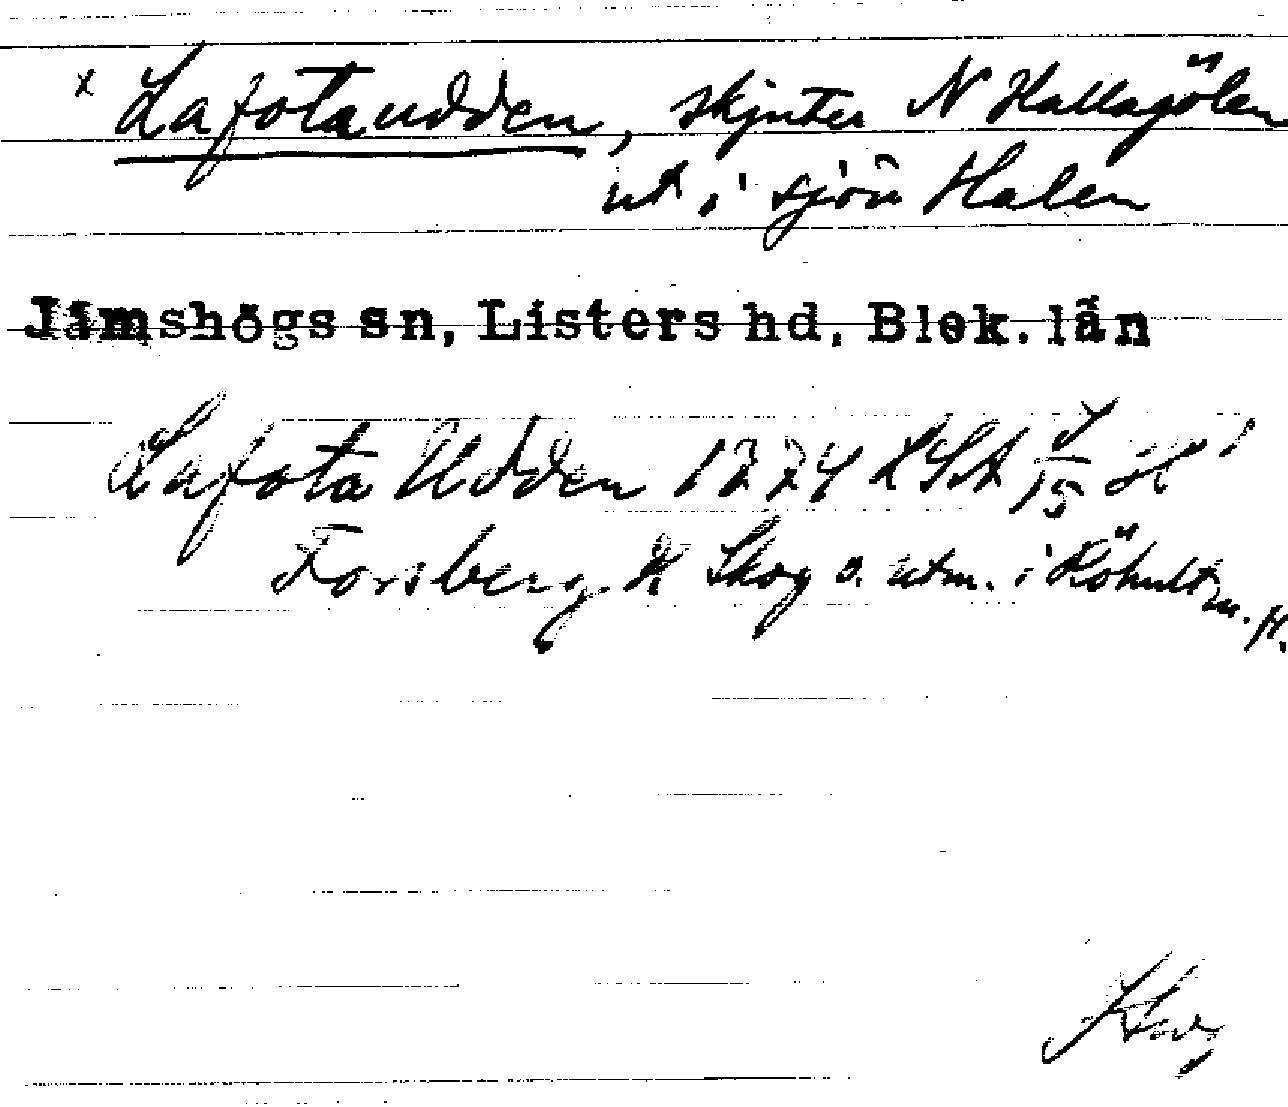 x Lafotaudden, skjuter N Hallagölen
ut i sjön Halen
Jämshögs sn, Listers hd, Blek. län
Lafota Udden 1874 LSA
Forsberg Skog o. utm. i Röhult m. fl.